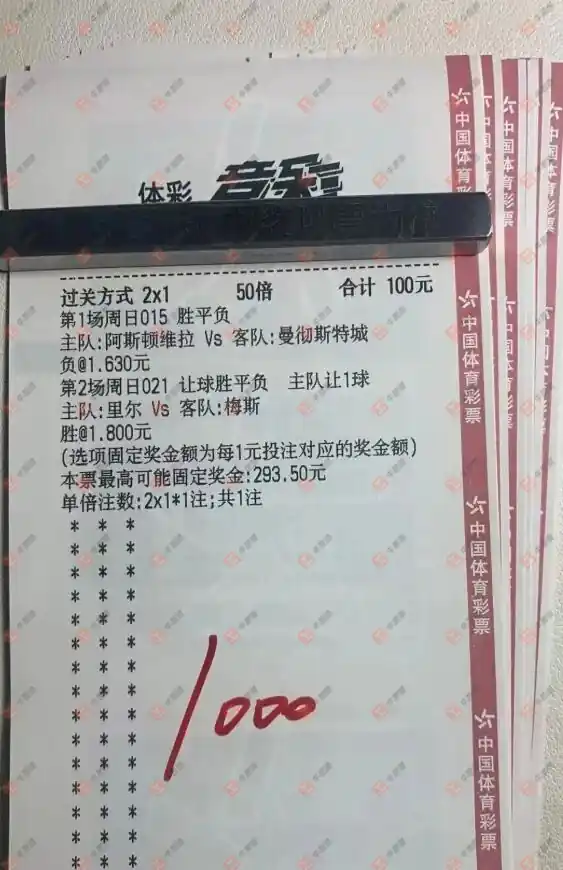 体彩
过关方式 2x1 50倍 合计 100元
第1场周日015 胜平负
主队:阿斯顿维拉 Vs 客队:曼彻斯特城
负@1.630元
第2场周日021 让球胜平负 主队让1球
主队:里尔 Vs 客队:梅斯
胜@1.800元
(选项固定奖金额为每1元投注对应的奖金额)
本票最高可能固定奖金:293.50元
单倍注数:2x1*1注;共1注
* * *
* * *
* * *
* * *
* * *
* * *
* * *
* * *
* * *
* * *
* * *
* * *
* * *
* * *
* * *
1000
中国体育彩
中国体育彩票
中国体育彩票
中国体育彩票